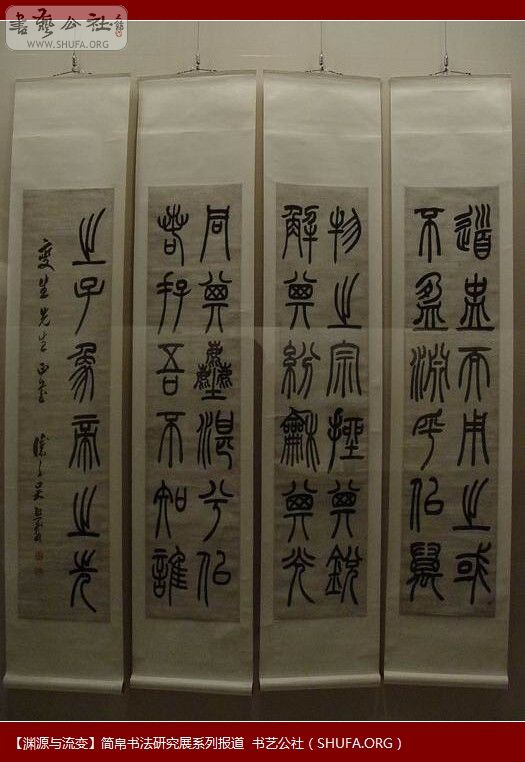 書藝公社
WWW.SHUFA.ORG
道盅而用之或
不盈淵乎佀萬
物之宗挫其銳
解其紛龢其光
同其塵湛兮佀
若存吾不知誰
之子象帝之先
先生
【渊源与流变】简帛书法研究展系列报道 书艺公社（SHUFA.ORG）